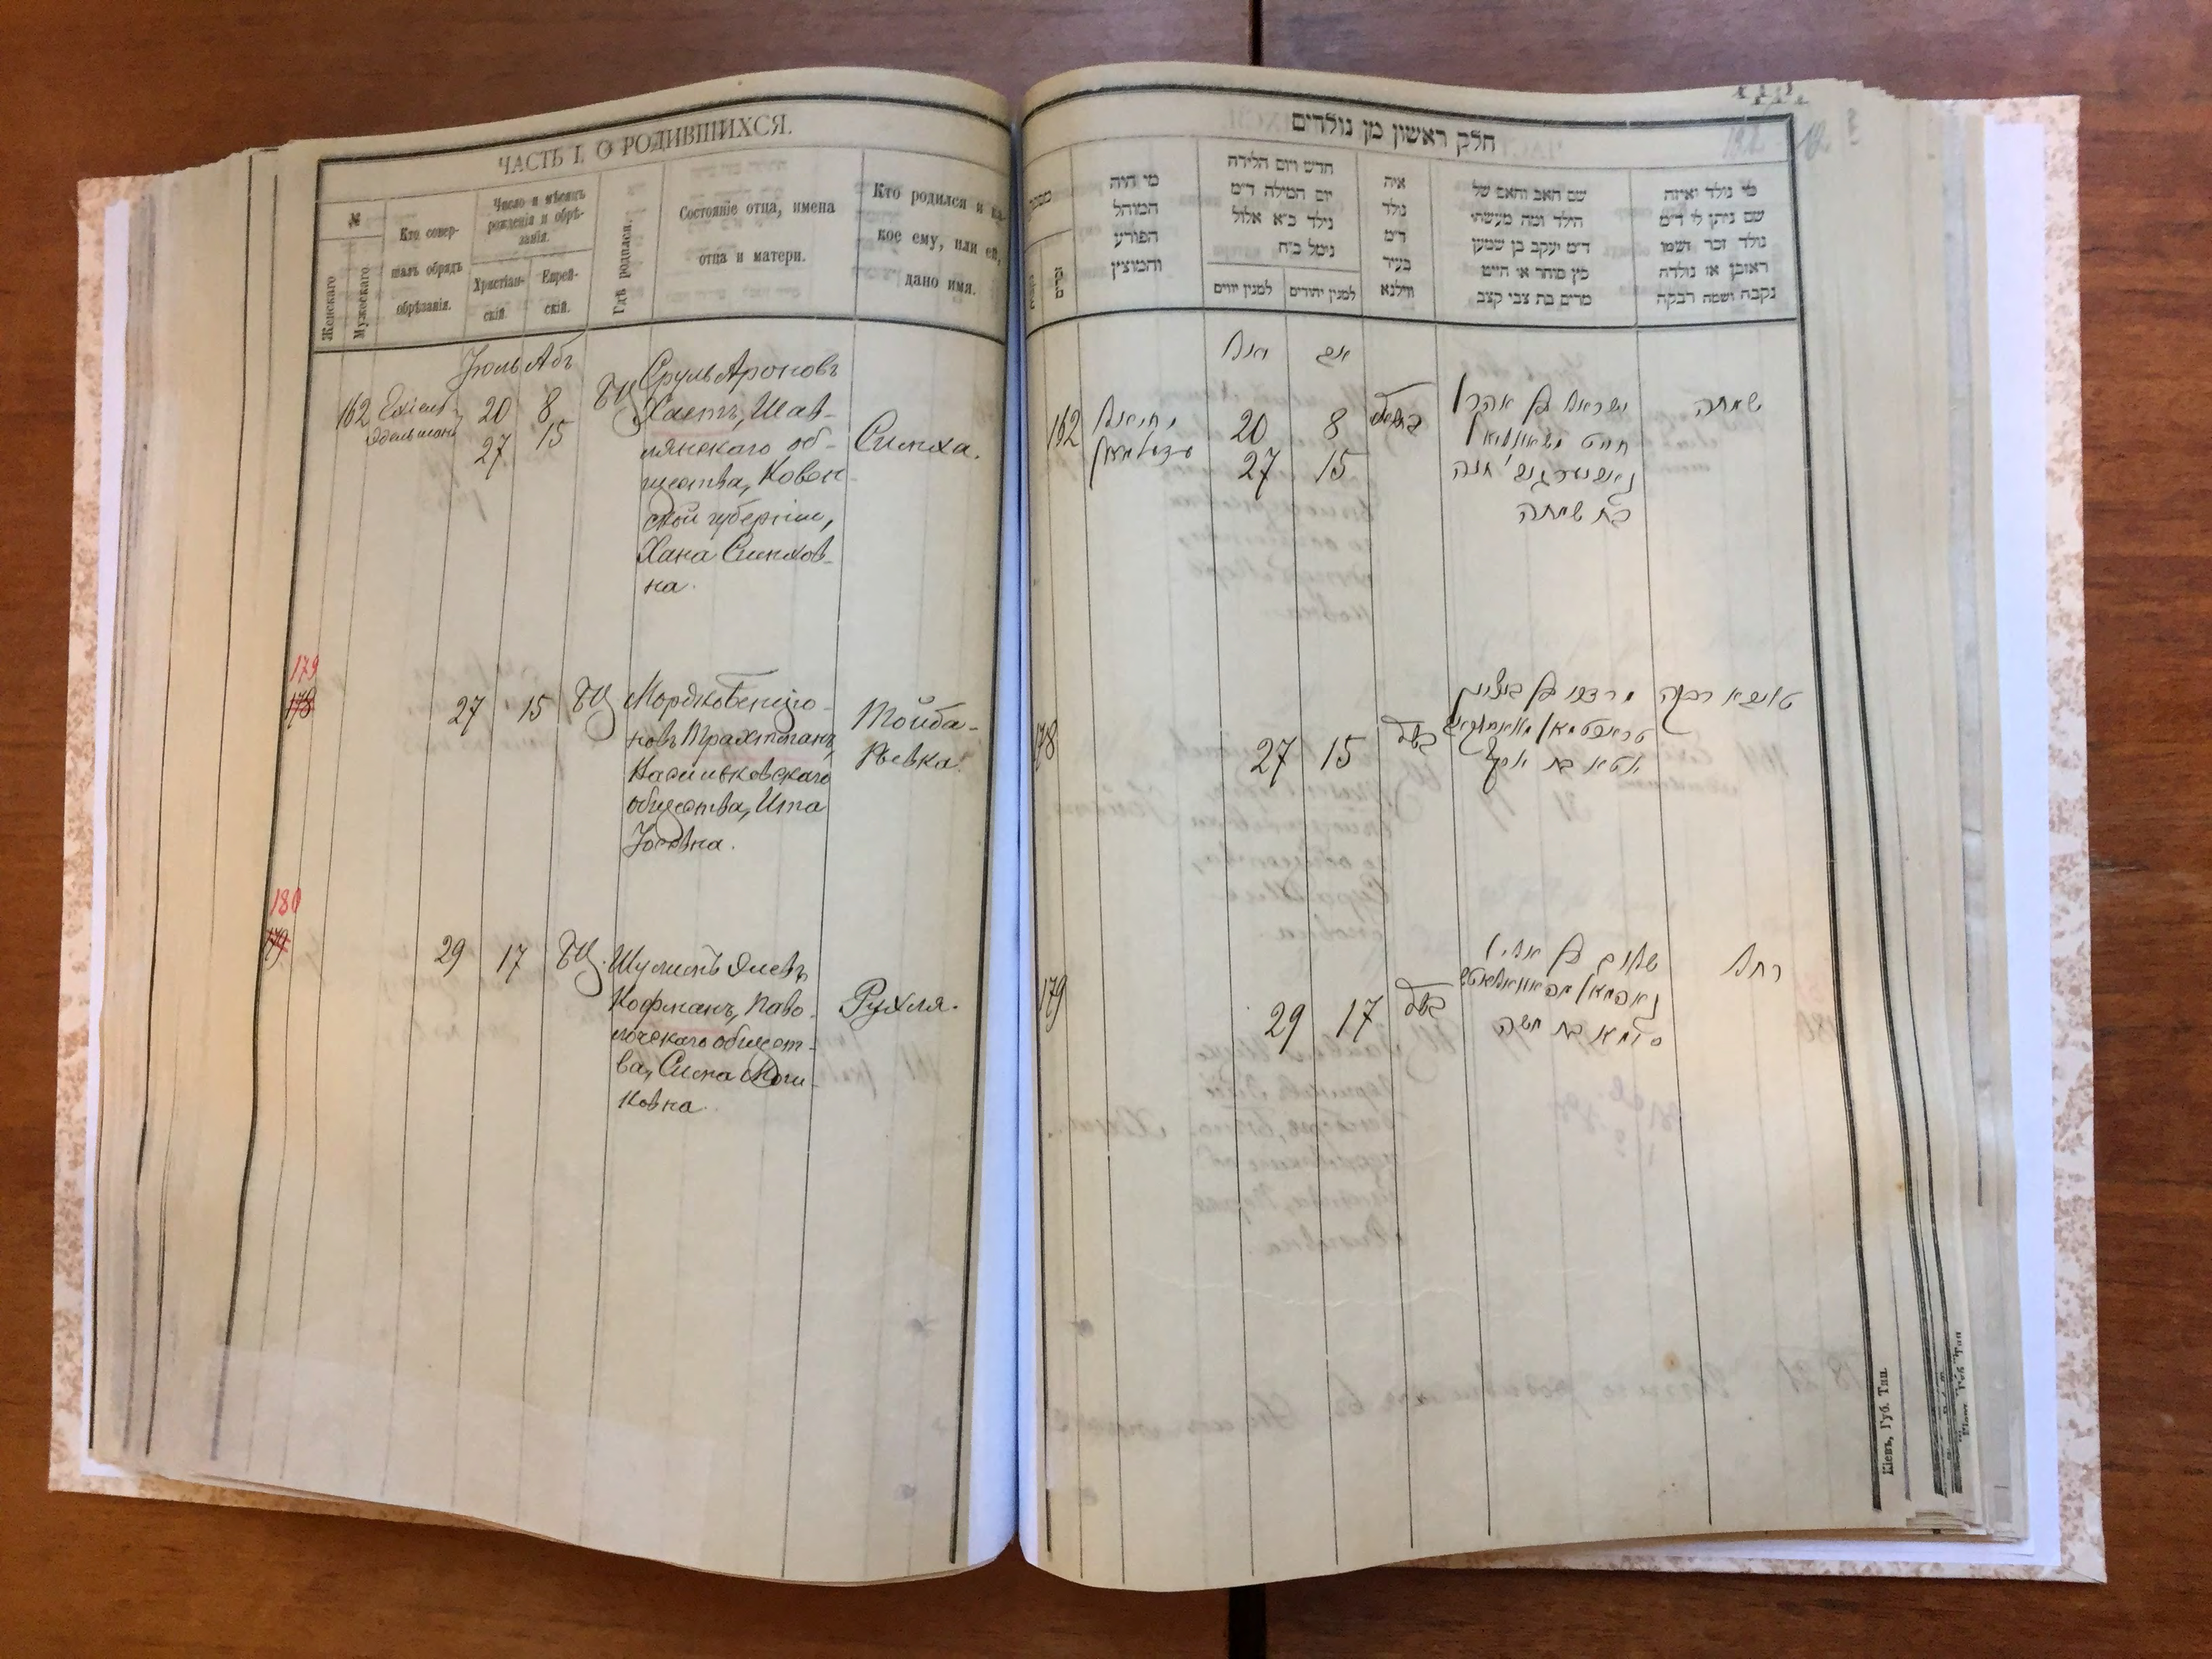 ЧАСТЬ I. О РОДИВШИХСЯ.
№
Женскаго
Мужескаго
Кто совер-
шалъ обрядъ
обрѣзанія.
Число и мѣсяцъ
рожденія и обрѣ-
занія.
Христіан-
скій.
Еврей-
скій.
Гдѣ родился.
Состояніе отца, имена
отца и матери.
Кто родился и ка-
кое ему, или ей,
дано имя.
Іюль Абъ
162
20 8
27 15
БЦ
Сруль Ароновъ
Хаетъ, Шав-
лянскаго об-
щества, Ковен-
ской губерніи,
Хана Симхов-
на.
Симха.
179
178
27 15 БЦ
Мордко Бенціо-
новъ Трахтманъ,
Васильковскаго
общества, Ита
Іосевна.
Тойба-
Ривка.
180
179
29 17 БЦ.
Шулимъ Элевъ
Кофманъ, Паво-
лочскаго общест-
ва, Сима Мош-
ковна.
Рухля.
חלק ראשון מן נולדים
זכרים
מי היה
המוהל
הפורע
והמוצץ
חדש ויום הלידה
יום המילה ד״מ
נולד כ״א אלול
נימל כ״ח
למנין יוונים
למנין יהודים
איה
נולד
ד״מ
בעיר
ווילנא
שם האב והאם של
הילד ומה מעשתי
ד״מ יעקב בן שמען
כץ סוחר או חייט
מרים בת צבי קצב
מי נולד ואיזה
שם ניתן לו ד״מ
נולד זכר ושמו
ראובן או נולדה
נקבה ושמה רבקה
יואל אב
162
יחיאל
עדעלמאן
20 8
27 15
ישראל בן אהרן
חייט
חנה
בת שמחה
שמחה
178
27 15
מרדכי בן בנציון
טראכטמאן
איטא בת
טויבא רבקה
179
29 17
שלום בן
קאפמאן
סימא בת משה
רחל
Кіевъ, Губ. Тип.